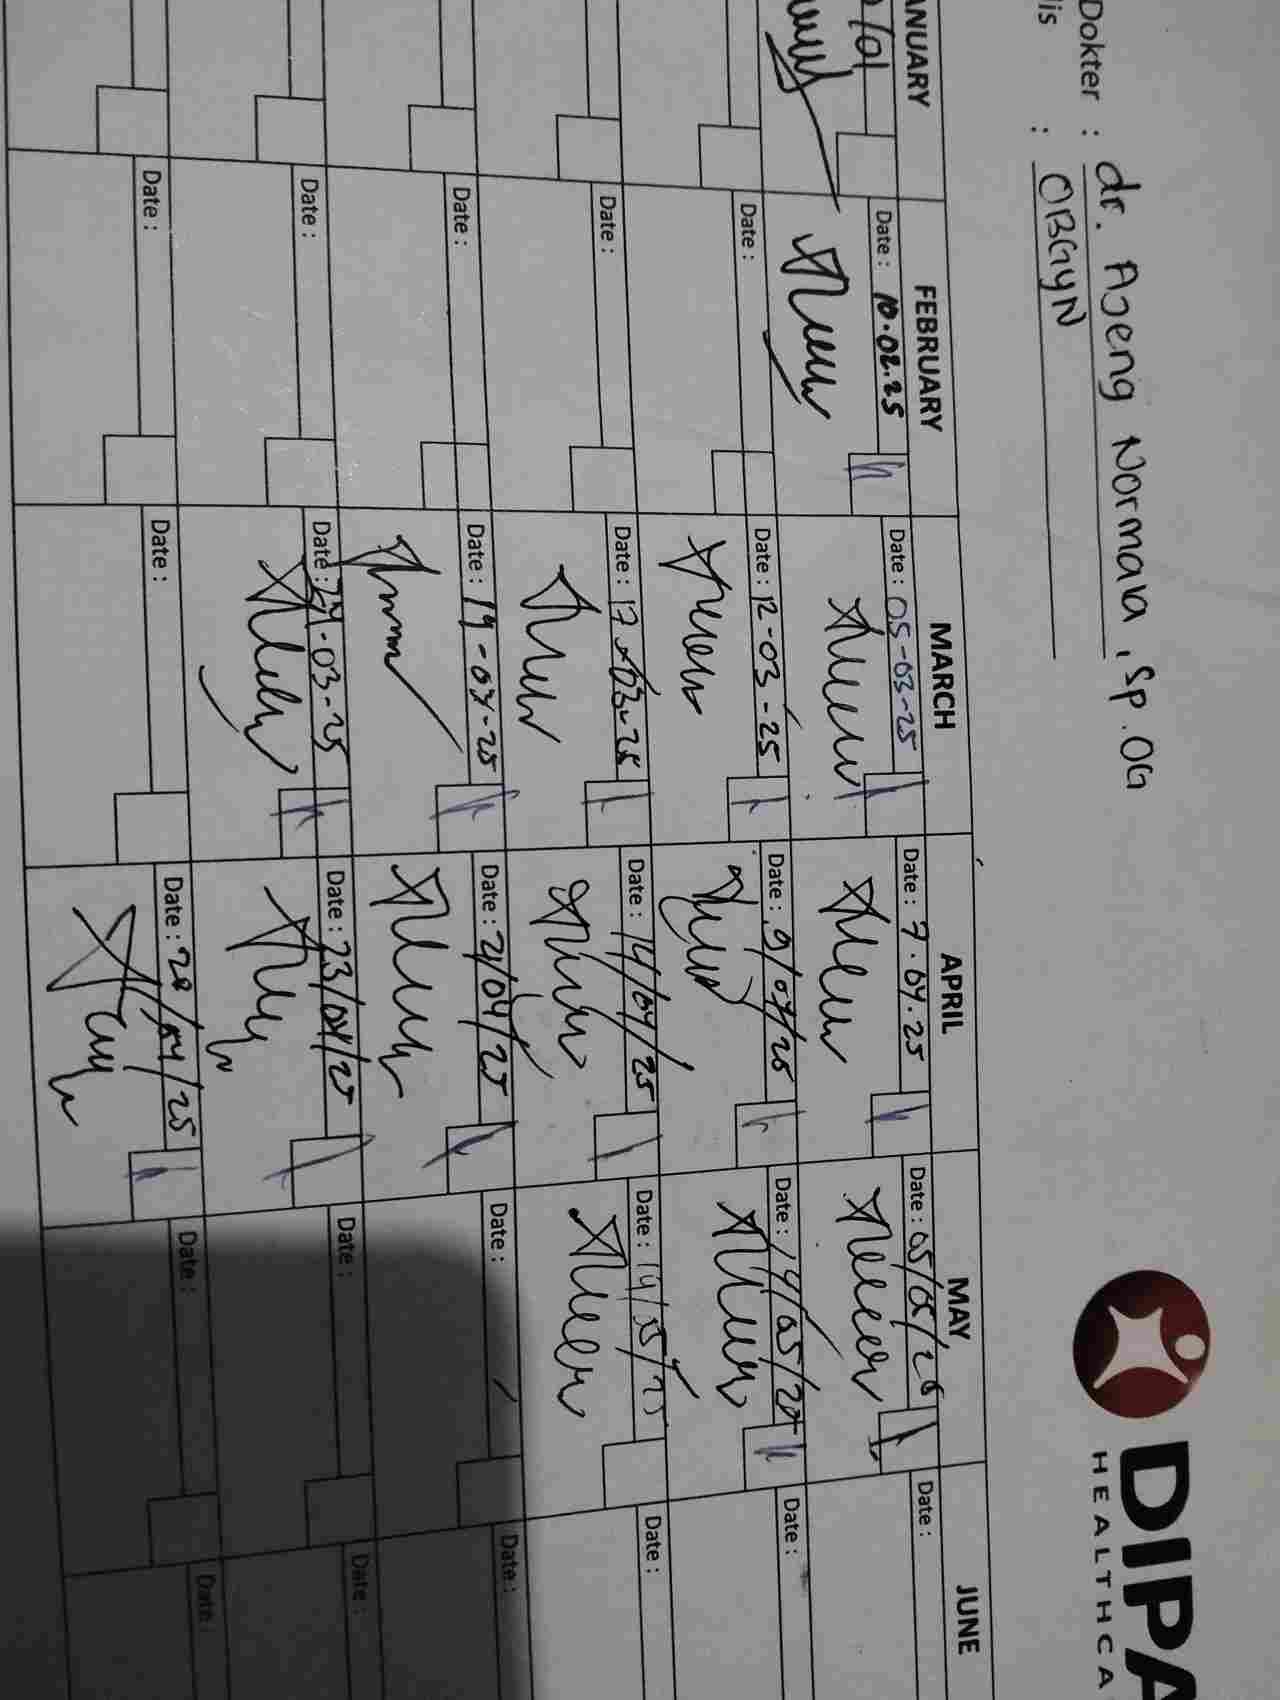 DIPA
HEALTHCA
Dokter : dr. Ajeng Normala, Sp.OG
lis : OBGYN
ANUARY FEBRUARY MARCH APRIL MAY JUNE
/01 Date : 10.02.25 Date : 05-03-25 Date : 7.04.25 Date : 05/05/25 Date :
Date : Date : 12-03-25 Date : 9/04/25 Date : 14/05/25 Date :
Date : Date : 17-03-25 Date : 14/04/25 Date : 14/05/25 Date :
Date : Date : 19-03-25 Date : 21/04/25 Date : Date :
Date : Date : 24.03.25 Date : 23/04/25 Date : Date :
Date : Date : Date : 28/04/25 Date : Date :